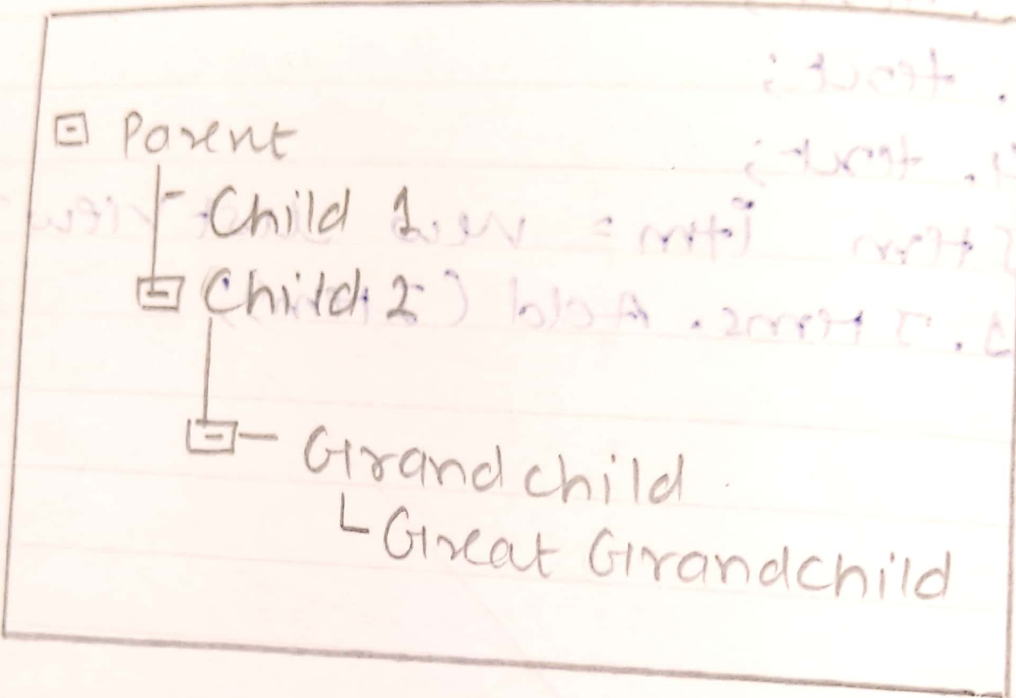 Parent
Child 1
Child 2
Grandchild
Great Grandchild